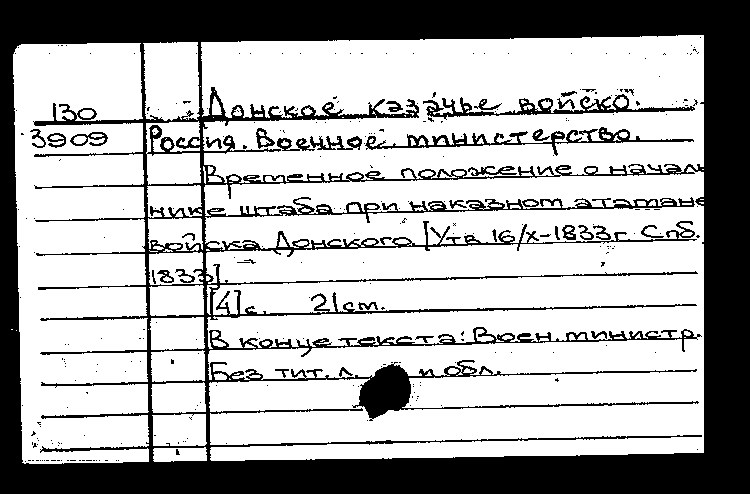 130 Донское казачье войско.
3909 Россия. Военное министерство.
Временное положение о началь
нике штаба при наказном атамане
войска Донского [Утв 16/X-1833г Спб.
1833].
[4]с. 21см.
В конце текста: Воен. министр.
Без тит. л. и обл.